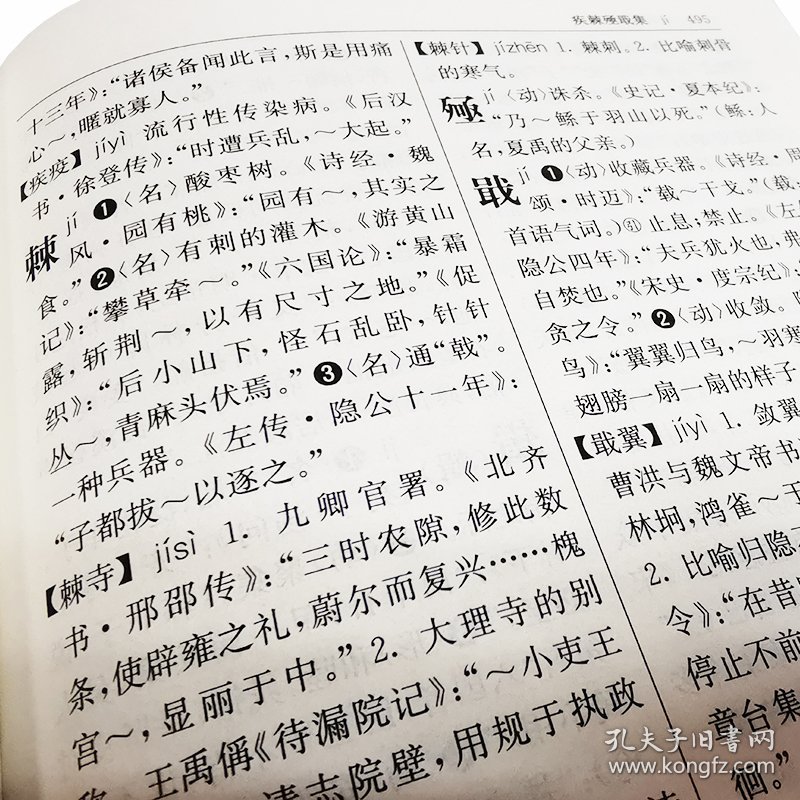 疾棘殛戢集 jí 495
十三年》:“诸侯备闻此言,斯是用痛
心~,暱就寡人。”
【疾疫】jíyì 流行性传染病。《后汉
书·徐登传》:“时遭兵乱,~大起。”
棘 jí ❶〈名〉酸枣树。《诗经·魏
风·园有桃》:“园有~,其实之
食。”❷〈名〉有刺的灌木。《游黄山
记》:“攀草牵~。”《六国论》:“暴霜
露,斩荆~,以有尺寸之地。”《促
织》:“后小山下,怪石乱卧,针针
丛~,青麻头伏焉。”❸〈名〉通“戟”。
一种兵器。《左传·隐公十一年》:
“子都拔~以逐之。”
【棘寺】jísì 1. 九卿官署。《北齐
书·邢邵传》:“三时农隙,修此数
条,使辟雍之礼,蔚尔而复兴……槐
宫~,显丽于中。”2. 大理寺的别
称。王禹偁《待漏院记》:“~小吏王
请志院壁,用规于执政
【棘针】jízhēn 1. 棘刺。2. 比喻刺骨
的寒气。
殛 jí〈动〉诛杀。《史记·夏本纪》:
“乃~鲧于羽山以死。”(鲧:人
名,夏禹的父亲。)
戢 jí ❶〈动〉收藏兵器。《诗经·周
颂·时迈》:“载~干戈。”(载:
首语气词。)㉛止息;禁止。《左
隐公四年》:“夫兵犹火也,弗
自焚也。”《宋史·度宗纪》:
贪之令。”❷〈动〉收敛。陶
鸟》:“翼翼归鸟,~羽寒
翅膀一扇一扇的样子
【戢翼】jíyì 1. 敛翼
曹洪与魏文帝书
林坰,鸿雀~于
2. 比喻归隐
令》:“在昔
停止不前
章台集
徊。”
孔夫子旧书网
www.kongfz.com